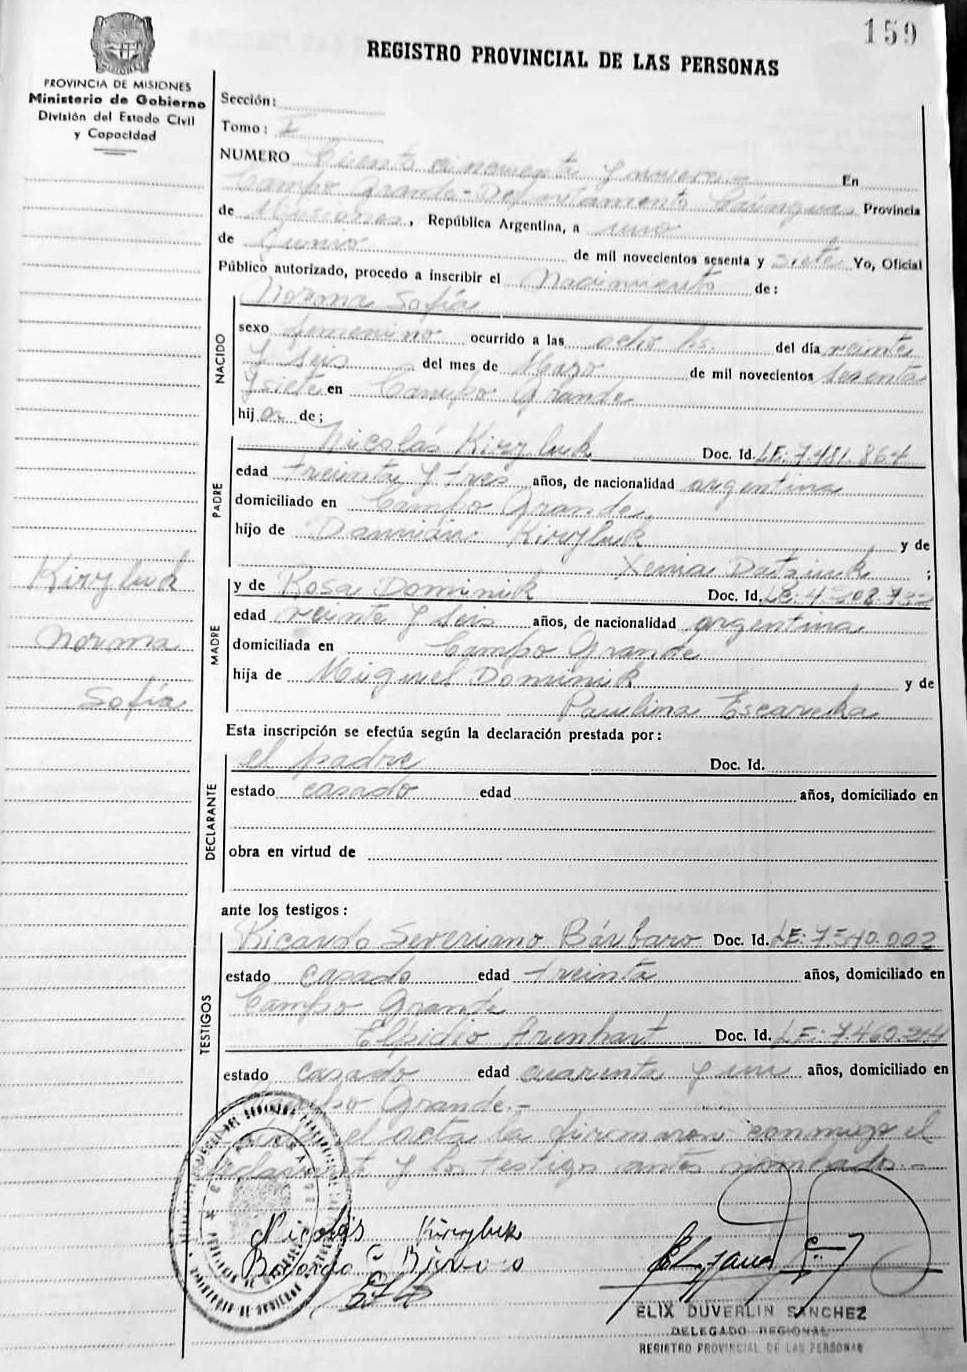 159
REGISTRO PROVINCIAL DE LAS PERSONAS
PROVINCIA DE MISIONES
Ministerio de Gobierno
División del Estado Civil
y Capacidad
Sección:
Tomo: I
NUMERO Ciento cincuenta y nueve.- En
Campo Grande - Departamento Cainguas Provincia
de Misiones, República Argentina, a uno
de Junio de mil novecientos sesenta y siete Yo, Oficial
Público autorizado, procedo a inscribir el Nacimiento de:
NACIDO
Norma Sofía
sexo femenino ocurrido a las ocho hs. del día veinte
y seis del mes de de mil novecientos sesenta
y siete en Campo Grande
hija de;
PADRE
Nicolás Kiryluk Doc. Id. LE: 7.481.864
edad treinta y tres años, de nacionalidad argentina
domiciliado en Campo Grande
hijo de Damián Kiryluk y de
Xenia Datziuk ;
Kiryluk
Norma
Sofía
MADRE
y de Rosa Dominiuk Doc. Id. LC: 4.208.732
edad veinte y seis años, de nacionalidad argentina
domiciliada en Campo Grande
hija de Miguel Dominiuk y de
Paulina
Esta inscripción se efectúa según la declaración prestada por:
DECLARANTE
el padre Doc. Id.
estado casado edad años, domiciliado en
obra en virtud de
ante los testigos:
TESTIGOS
Ricardo Severiano Bárbaro Doc. Id. LE: 7.540.002
estado casado edad treinta años, domiciliado en
Campo Grande
Elpidio Arenhart Doc. Id. LE: 7.460.214
estado casado edad cuarenta y un años, domiciliado en
Campo Grande.-
el acta la firmaron conmigo el
declarante y los testigo antes nombrado.-
Nicolás Kiryluk
ELIX DUVERLIN SANCHEZ
DELEGADO REGIONAL
REGISTRO PROVINCIAL DE LAS PERSONAS